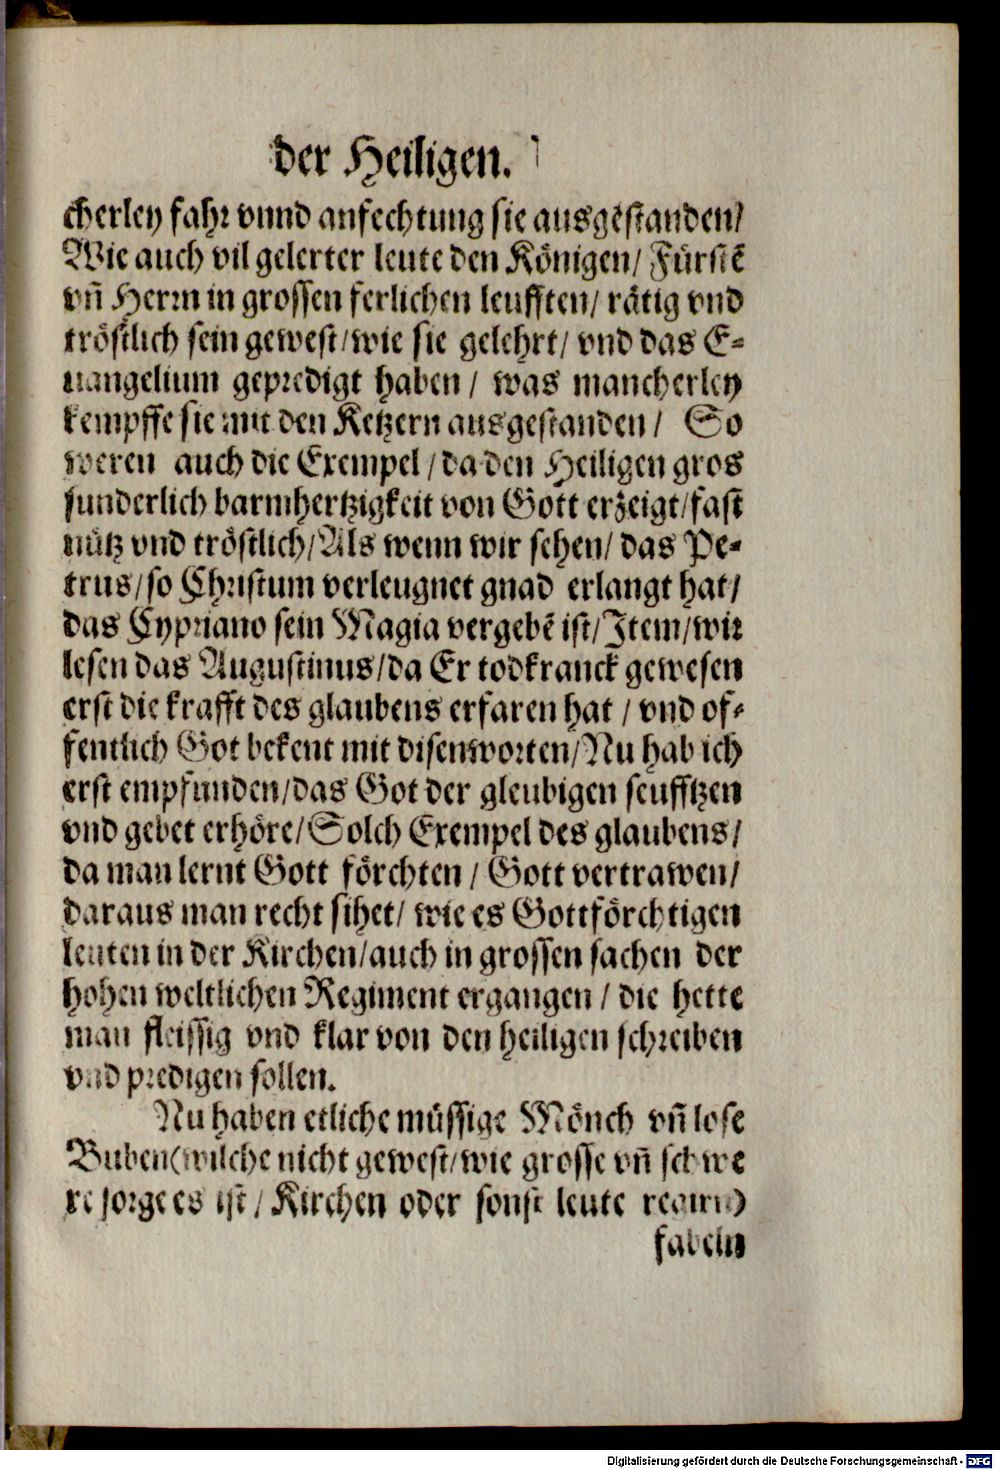 der Heiligen.
cherley fahr vnnd anfechtung sie ausgestanden/
Wie auch vil gelerter leute den Königen/ Fürstē
vñ Herrn in grossen ferlichen leufften/ rätig vnd
tröstlich sein gewest/wie sie gelehrt/ vnd das E-
uangelium gepredigt haben/ was mancherley
kempffe sie mit den Ketzern ausgestanden/ So
weren auch die Exempel/da den Heiligen gros
sunderlich barmhertzigkeit von Gott erzeigt/fast
nütz vnd tröstlich/Als wenn wir sehen/ das Pe-
trus/so Christum verleugnet gnad erlangt hat/
das Cypriano sein Magia vergebē ist/Item/wir
lesen das Augustinus/da Er todkranck gewesen
erst die krafft des glaubens erfaren hat/ vnd of-
fentlich Got bekent mit disen worten/Nu hab ich
erst empfunden/das Got der gleubigen seufftzen
vnd gebet erhöre/Solch Exempel des glaubens/
da man lernt Gott förchten/ Gott vertrawen/
daraus man recht sihet/ wie es Gottförchtigen
leuten in der Kirchen/auch in grossen sachen der
hohen weltlichen Regiment ergangen/ die hette
man fleissig vnd klar von den heiligen schreiben
vnd predigen sollen.
Nu haben etliche müssige Mönch vñ lose
Buben(wilche nicht gewest/wie grosse vñ schwe
re sorge es ist/ Kirchen oder sonst leute regirn)
fabeln
Digitalisierung gefördert durch die Deutsche Forschungsgemeinschaft - DFG